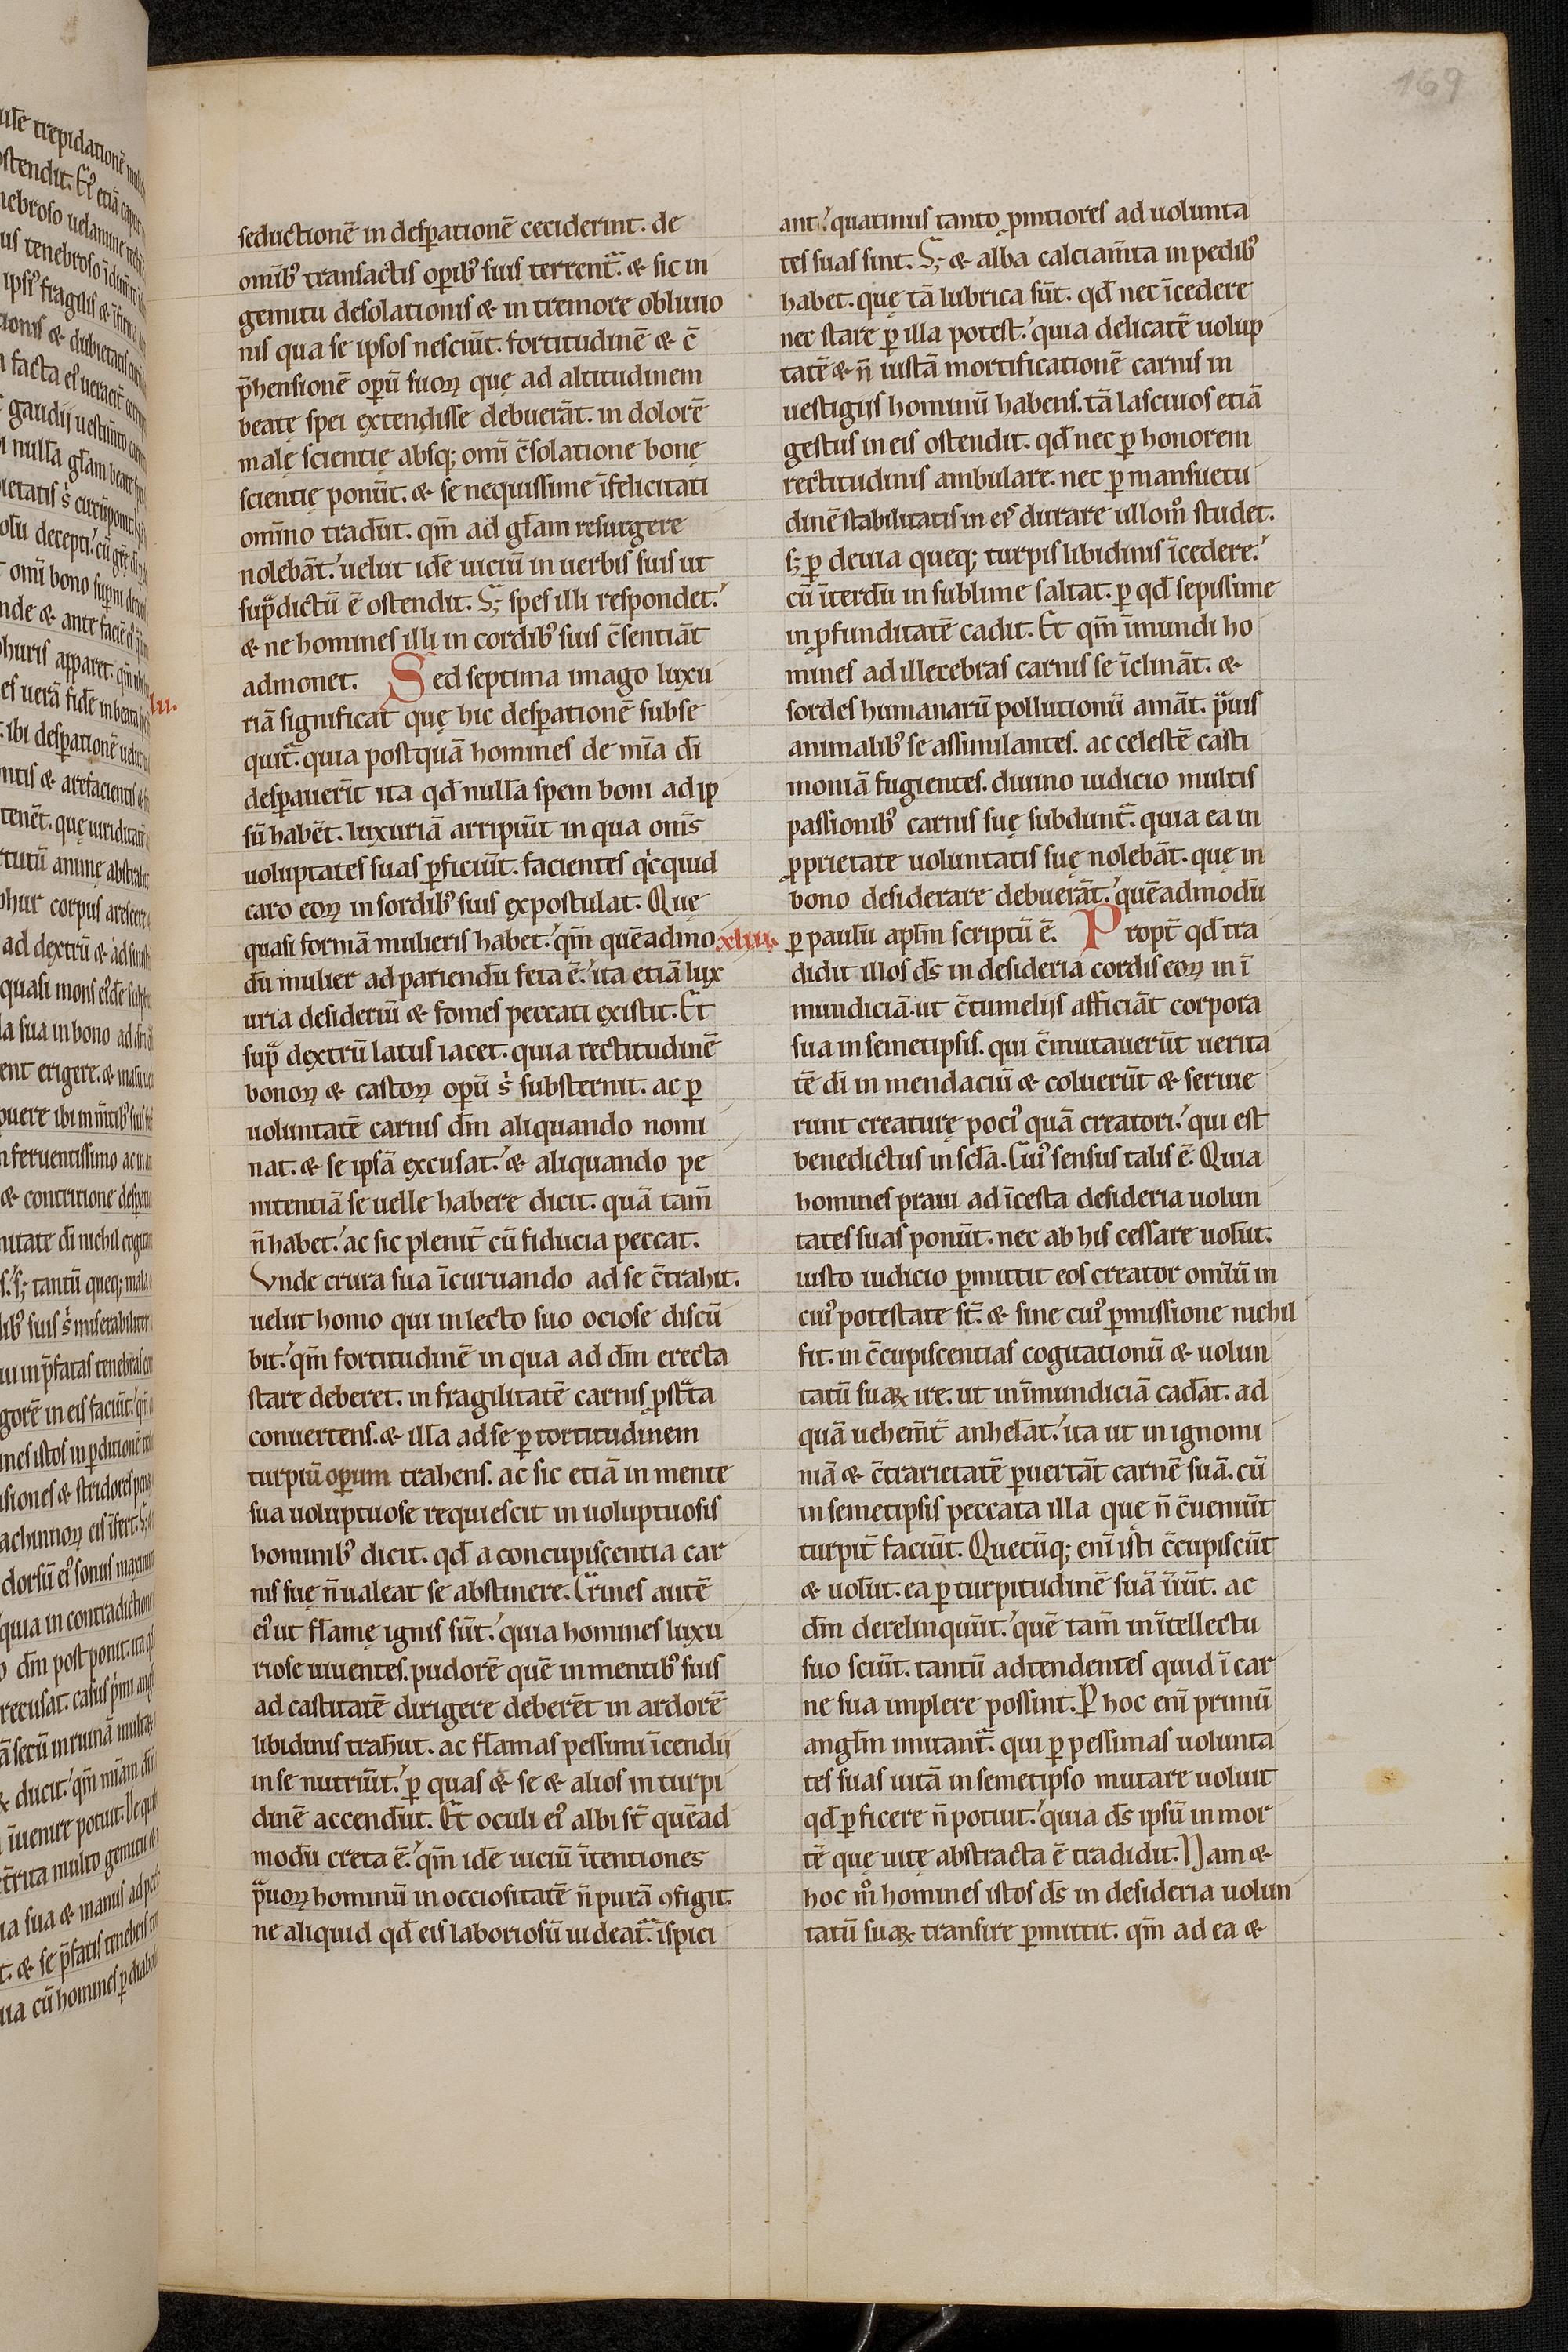 169
seductionē in desꝑationē ceciderint. de
omībꝰ transactis oꝑibꝰ suis terrent᷑. & sic in
gemitu desolationis & in tremore obliuio
nis qua se ipsos nesciūt. fortitudinē & c̄
p̄hensionē oꝑū suoꝝ quę ad altitudinem
beatę spei extendisse debuerāt. in dolorē
malę scientię absq; omī c̄solatione bonę
scientię ponūt. & se nequissime īfelicitati
omīno tradūt. qm̄ ad gl̄am resurgere
nolebāt.' uelut idē uiciū in uerbis suis ut
supᷓdictū ē ostendit. S; spes illi respondet.'
& ne homines illi in cordibꝰ suis c̄sentiāt
admonet. Sed septima imago luxu
lii.
riā significat quę hic desꝑationē subse
quit᷑. quia postquā homines de mīa dī
desꝑauerīt ita qd̄ null̄a spem boni ad ip
sū habēt. luxuriā arripiūt in qua om̄s
uoluptates suas ꝑficiūt. facientes qͥcquid
caro eoꝝ in sordibꝰ suis expostulat. Quę
quasi formā mulieris habet.' qm̄ quēadmo
dū mulier ad pariendū feta ē.' ita etiā lux
uria desideriū & fomes peccati existit. Et
supᷓ dextrū latus iacet. quia rectitudinē
bonoꝝ & castoꝝ oꝑū sͥ substernit. ac ꝑ
uoluntatē carnis dm̄ aliquando nomi
nat. & se ipsā excusat.' & aliquando pe
nitentiā se uelle habere dicit. quā tam̄
n̄ habet.' ac sic pleniť cū fiducia peccat.
Vnde crura sua īcuruando ad se c̄trahit.
uelut homo qui in lecto suo ociose discū
bit.' qm̄ fortitudinē in qua ad dm̄ erecta
stare deberet. in fragilitatē carnis ꝓstᷓta
conuertens. & illa ad se ꝑ tortitudinem
turpiū operum trahens. ac sic etiā in mente
sua uoluptuose requiescit in uoluptuosis
hominibꝰ dicit. qd̄ a concupiscentia car
nis suę n̄ ualeat se abstinere. Crines autē
eiꝰ ut flāmę ignis sūt.' quia homines luxu
riose uiuentes. pudorē quē in mentibꝰ suis
ad castitatē dirigere deberēt in ardorē
libidinis trah̄ut. ac flāmas pessimi īcendij
in se nutriūt.' ꝑ quas & se & alios in turpi
dinē accendūt. Et oculi eiꝰ albi st̄ quēad
modū creta ē.' qm̄ idē uiciū ītentiones
pᷓuoꝝ hominū in occiositatē n̄ purā ꝯfigit.
ne aliquid qd̄ eis laboriosū uideat᷑. īspici
ant.' quatinus tanto ꝓmtiores ad uolunta
tes suas sint. S; & alba calciam̄ta in pedibꝰ
habet. quę tā lubrica sūt. qd̄ nec īcedere
nec stare ꝑ illa potest.' quia delicatē uolup
tatē & n̄ iustā mortificationē carnis in
uestigijs hominū habens. tā lasciuos etiā
gestus in eis ostendit. qd̄ nec ꝑ honorem
rectitudinis ambulare. nec ꝑ mansuetu
dinē stabilitatis in eis durare ullomͦ studet.
s; ꝑ deuia queq; turpis libidinis īcedere.'
cū īterdū in sublime saltat. ꝑ qd̄ sepissime
in ꝓfunditatē cadit. Et qm̄ īmundi ho
mines ad illecebras carnis se īclināt. &
sordes humanarū pollutionū amāt. pᷓuis
animalibꝰ se assimilantes. ac celestē casti
moniā fugientes. diuino iudicio multis
passionibꝰ carnis suę subdunt᷑. quia ea in
ꝓprietate uoluntatis suę nolebāt. quę in
bono desiderare debuerāt.' quēadmodū
xliii.
ꝑ paulū apl̄m scriptū ē. Propť qd̄ tra
didit illos ds̄ in desideria cordis eoꝝ in ī
mundiciā. ut c̄tumelijs afficiāt corpora
sua in semetipsis. qui c̄mutauerūt uerita
tē dī in mendaciū & coluerūt & serue
runt creaturę pociꝰ quā creatori.' qui est
benedictus in scl̄a. Cuiꝰ sensus talis ē. Quia
homines praui ad īcesta desideria uolun
tates suas ponūt. nec ab his cessare uolūt.
iusto iudicio ꝑmittit eos creator omīū in
cuiꝰ potestate st̄. & sine cuiꝰ ꝑmissione nichil
fit. in c̄cupiscentias cogitationū & uolun
tatū suaꝝ ire. ut in īmundiciā cadāt. ad
quā uehem̄ť anhelāt.' ita ut in ignomi
niā & c̄trarietatē ꝑuertāt carnē suā. cū
in semetipsis peccata illa quę n̄ c̄ueniūt
turpiť faciūt. Quecūq; enī isti c̄cupiscūt
& uolūt. ea ꝑ turpitudinē suā īuīt. ac
dm̄ derelinquūt.' quē tam̄ in ītellectu
suo sciūt. tantū adtendentes quid ī car
ne sua implere possint. Ꝑ hoc enī primū
angl̄m imitant᷑. qui ꝑ pessimas uolunta
tes suas uitā in semetipso mutare uoluit
qd̄ ꝑficere n̄ potuit.' quia ds̄ ipsū in mor
tē quę uitę abstracta ē tradidit. Nam &
hoc mͦ homines istos ds̄ in desideria uolun
tatū suaꝝ transire ꝑmittit. qm̄ ad ea &